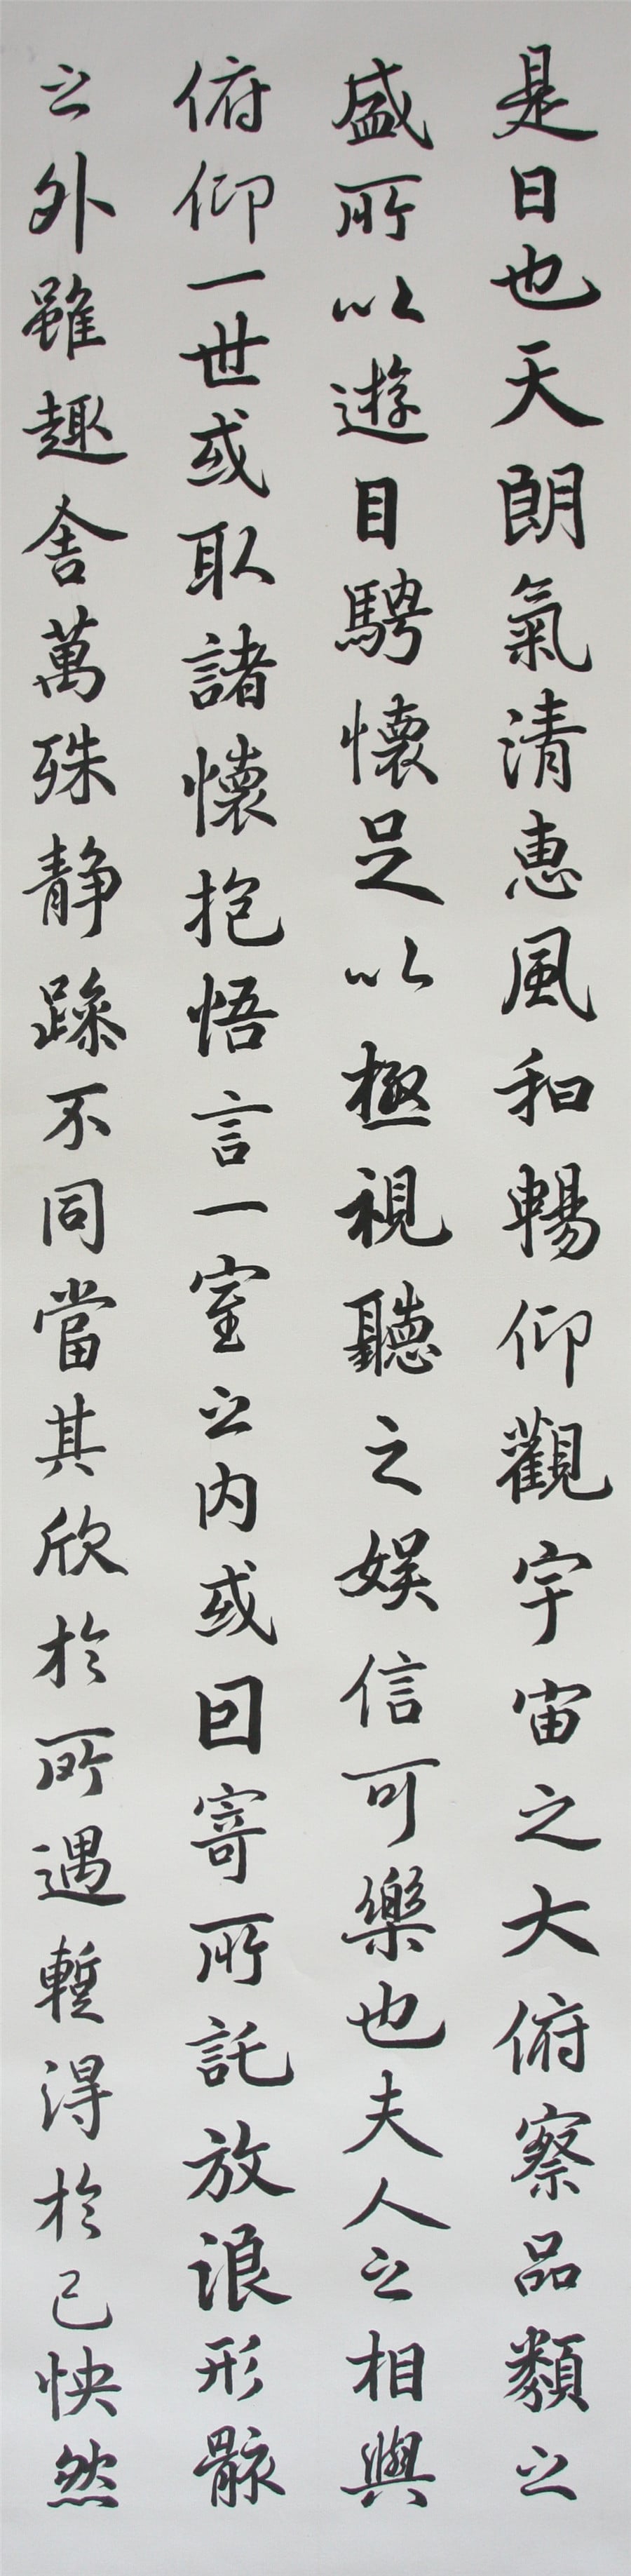 是日也天朗氣清恵風和暢仰觀宇宙之大俯察品類之
盛所以遊目騁懷足以極視聽之娛信可樂也夫人之相與
俯仰一世或取諸懷抱悟言一室之内或因寄所託放浪形骸
之外雖趣舍萬殊静躁不同當其欣於所遇暫得於己怏然